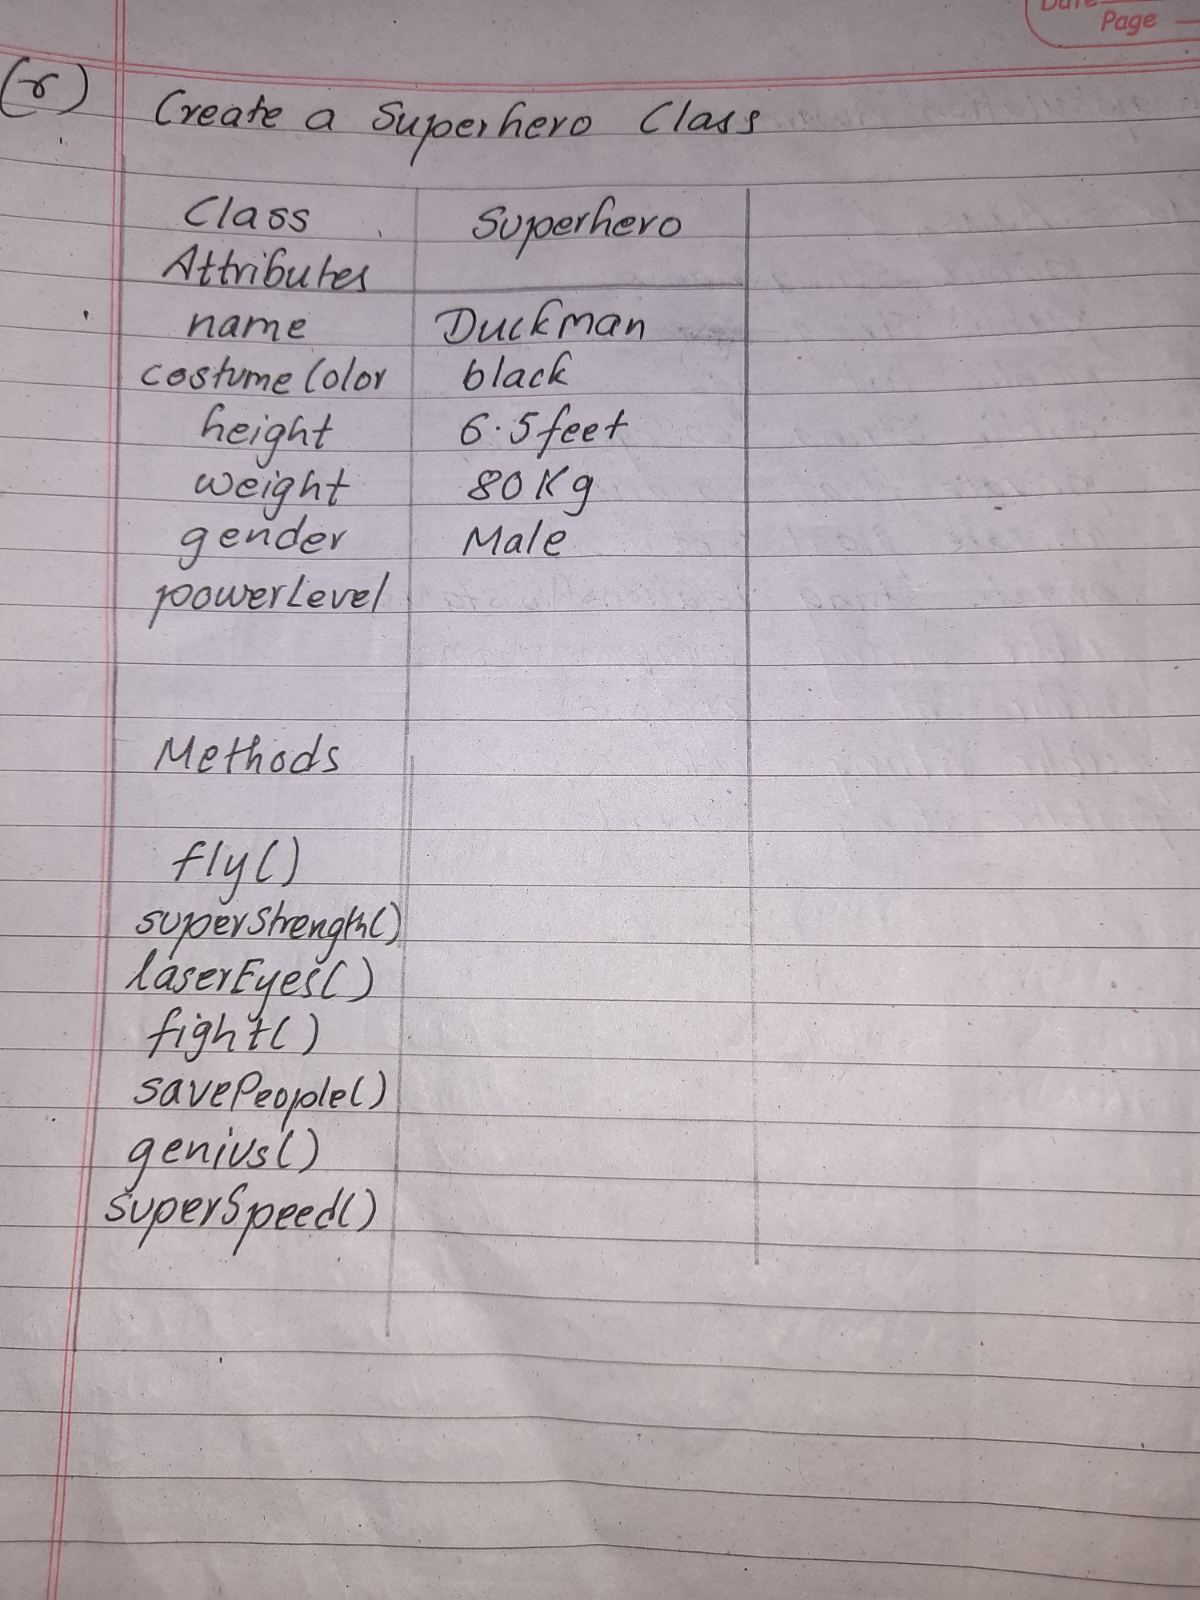 Date
Page
(r) Create a Superhero Class
Class Superhero
Attributes
name Duckman
costumeColor black
height 6.5feet
weight 80Kg
gender Male
powerLevel
Methods
fly()
superStrength()
laserEyes()
fight()
savePeople()
genius()
superSpeed()